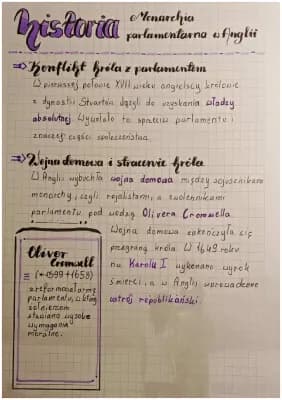 Historia
Monarchia
parlamentarna w Anglii
⇒ Konflikt króla z parlamentem
W pierwszej połowie XVII wieku angielscy królowie
z dynastii Stuartów dążyli do uzyskania władzy
absolutnej. Wywołało to sprzeciw parlamentu i
znacznej części społeczeństwa.
⇒ Wojna domowa i stracenie króla
W Anglii wybuchła wojna domowa między zwolennikami
monarchy, czyli rojalistami, a zwolennikami
parlamentu pod wodzą Olivera Cromwella.
Wojna domowa zakończyła się
przegraną króla. W 1649 roku
na Karolu I wykonano wyrok
śmierci, a w Anglii wprowadzono
ustrój republikański.
Oliver
Cromwell
(*1599 +1658)
zreformował armię
parlamentu, w której
żołnierzom
stawiano wysokie
wymagania
moralne.